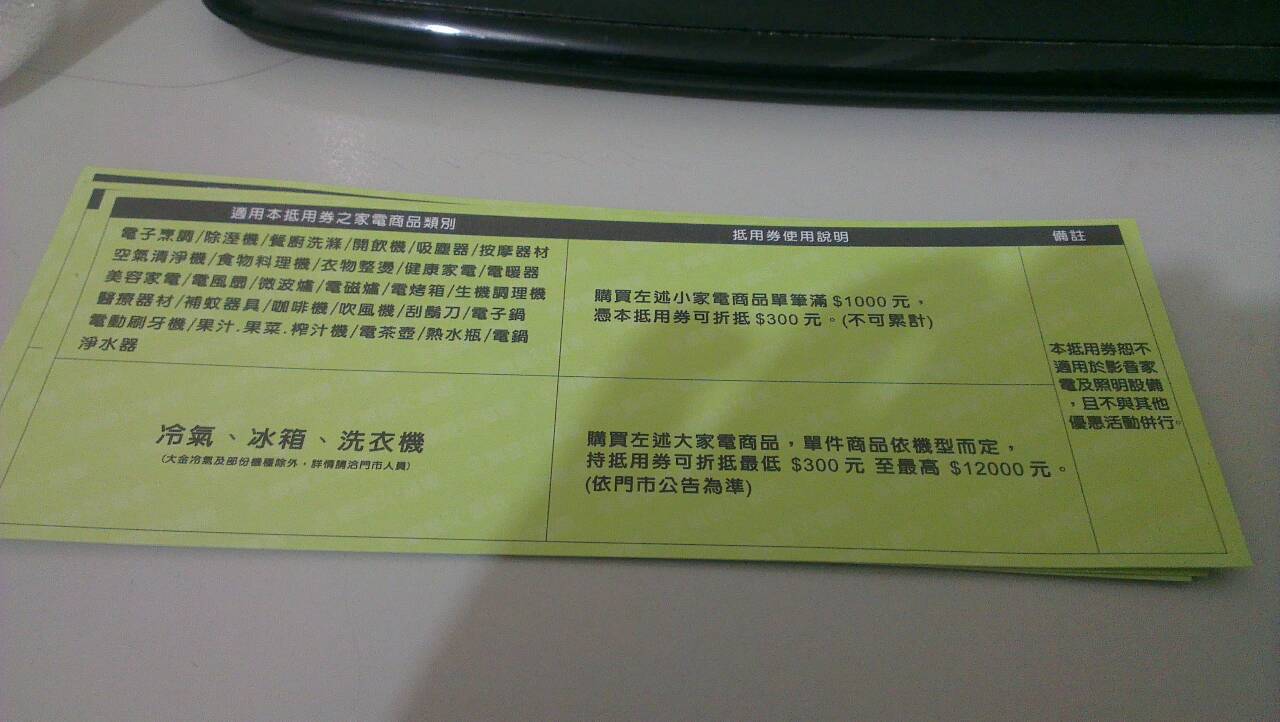 適用本抵用券之家電商品類別
電子烹調/除溼機/餐廚洗滌/開飲機/吸塵器/按摩器材
空氣清淨機/食物料理機/衣物整燙/健康家電/電暖器
美容家電/電風扇/微波爐/電磁爐/電烤箱/生機調理機
醫療器材/補蚊器具/咖啡機/吹風機/刮鬍刀/電子鍋
電動刷牙機/果汁.果菜.榨汁機/電茶壺/熱水瓶/電鍋
淨水器
冷氣、冰箱、洗衣機
(大金冷氣及部份機種除外，詳情請洽門市人員)
抵用券使用說明
購買左述小家電商品單筆滿 $1000 元，
憑本抵用券可折抵 $300 元。(不可累計)
購買左述大家電商品，單件商品依機型而定，
持抵用券可折抵最低 $300 元 至最高 $12000 元。
(依門市公告為準)
備註
本抵用券恕不
適用於影音家
電及照明設備
，且不與其他
優惠活動併行。